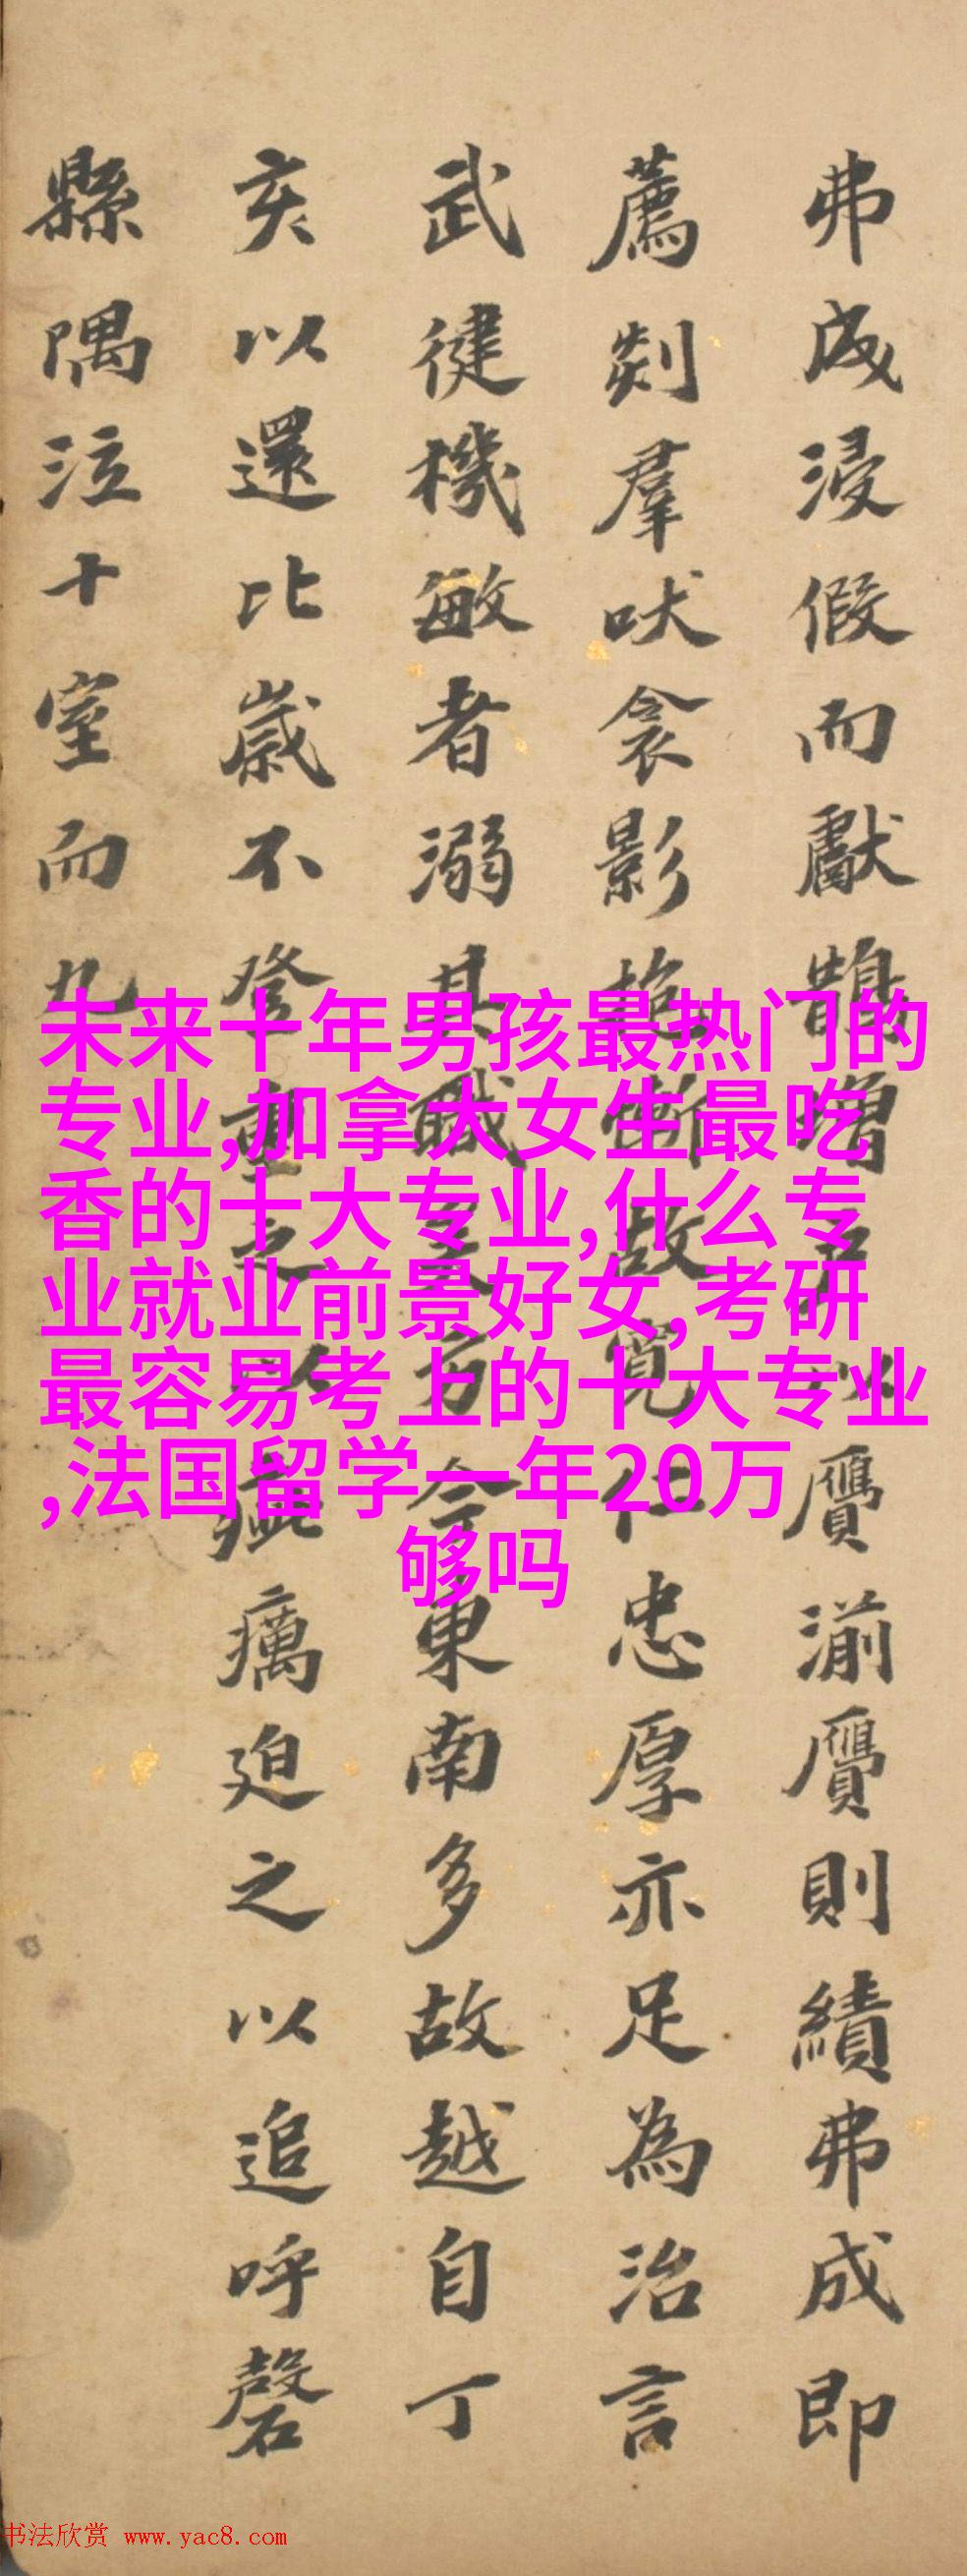 弗成浸假而獻鵲增
以贗湔贗則績弗成即
薦剡羣吠衾影
故寬仁忠厚亦足為治言
武健機敏者溺其職
方今東南多故越自丁
亥以還比歲不登重之
以
癘迫之以追呼磬
縣隅泣十室而九
未来十年男孩最热门的
专业,加拿大女生最吃
香的十大专业,什么专
业就业前景好女,考研
最容易考上的十大专业
,法国留学一年20万
够吗
书法欣赏 www.yac8.com